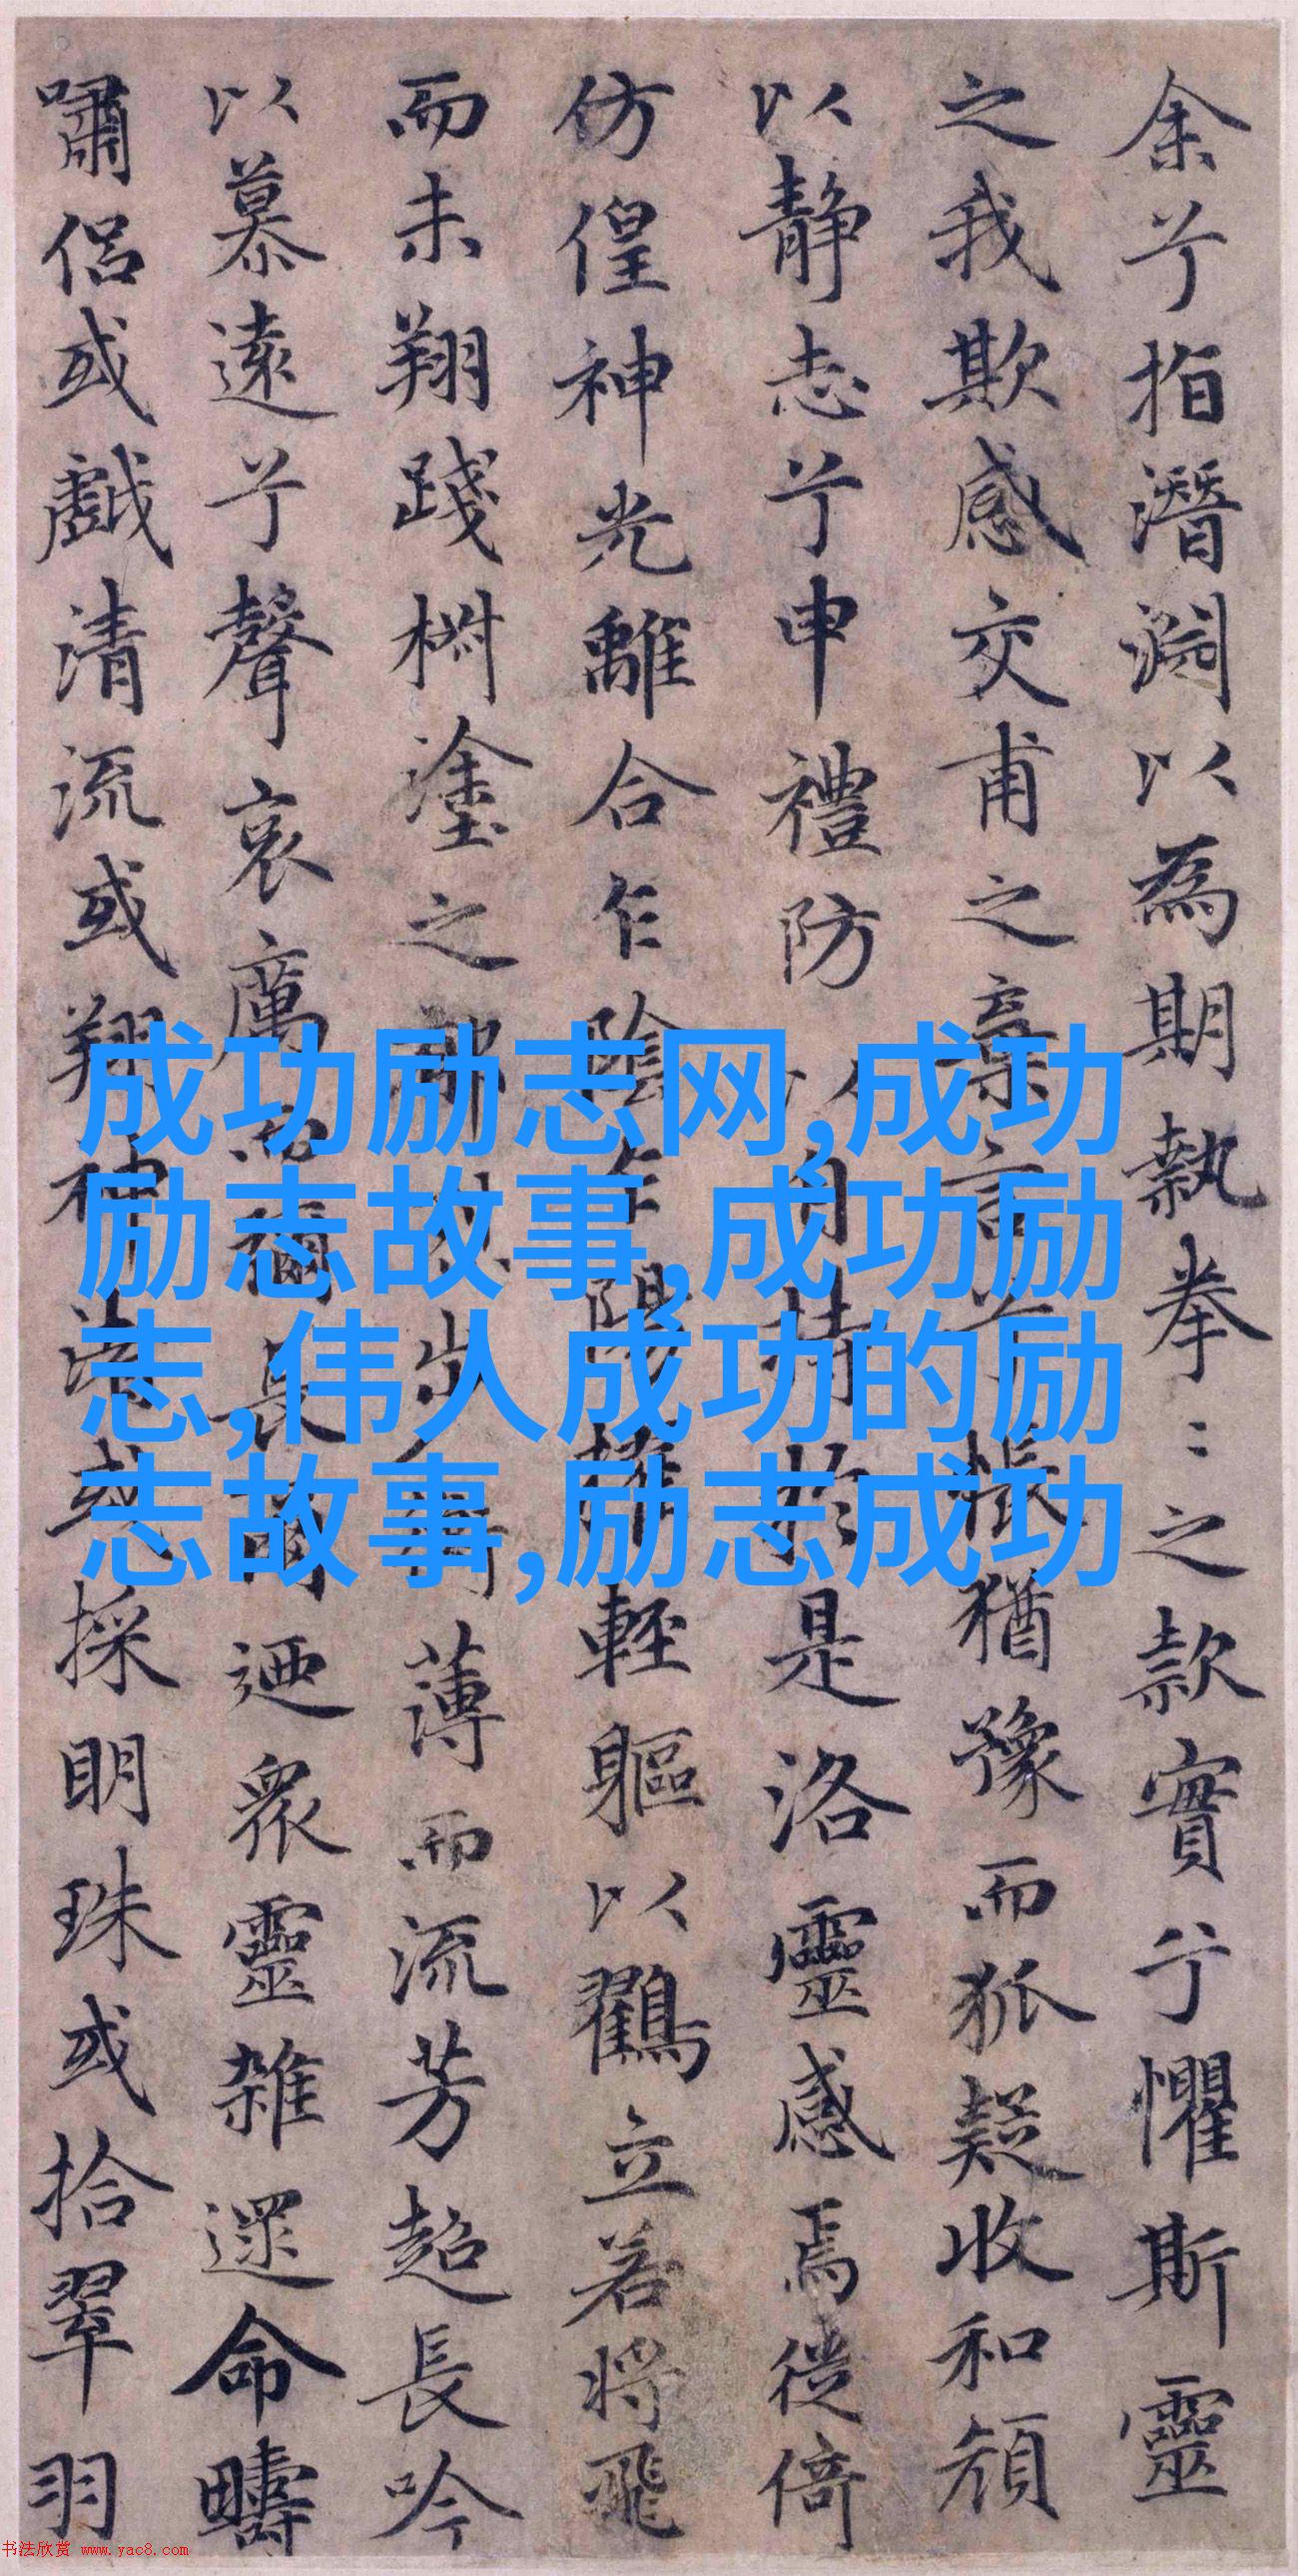 余兮指潛淵以為期執拳〻之款實兮懼斯靈
之我欺感交甫之棄言兮悵猶豫而狐疑收和顏
以靜志兮申禮防以自持於是洛靈感焉徙倚
仿偟神光離合乍陰乍陽擢輕軀以鶴立若將飛
而未翔踐椒塗之郁烈步蘅薄而流芳超長吟
以慕遠兮聲哀厲而彌長爾迺衆靈雜遝命疇
嘯侶或戲清流或翔神渚或採明珠或拾翠羽
成功励志网,成功
励志故事,成功励
志,伟人成功的励
志故事,励志成功
书法欣赏 www.yac8.com